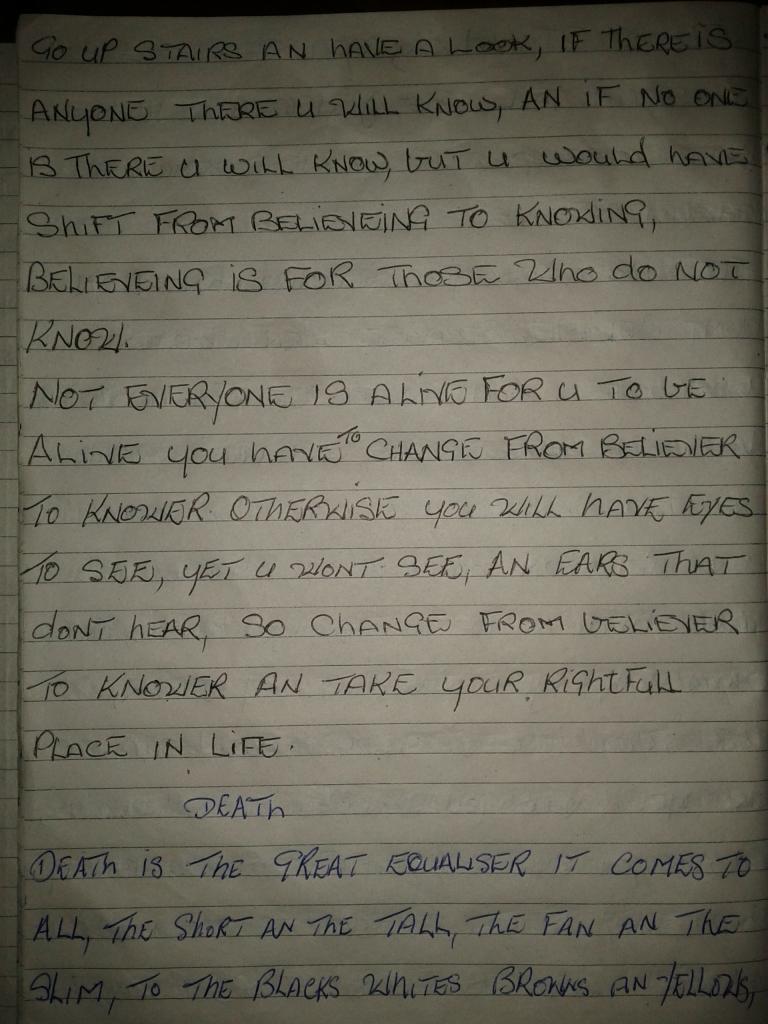 GO UP STAIRS AN HAVE A LOOK, IF THERE IS
ANYONE THERE U WILL KNOW, AN IF NO ONE
IS THERE U WILL KNOW, BUT U WOULD HAVE
SHIFT FROM BELIEVEING TO KNOWING,
BELIEVEING IS FOR THOSE WHO DO NOT
KNOW.
NOT EVERYONE IS ALIVE FOR U TO BE
ALIVE YOU HAVE TO CHANGE FROM BELIEVER
TO KNOWER OTHERWISE YOU WILL HAVE EYES
TO SEE, YET U WONT SEE, AN EARS THAT
DONT HEAR, SO CHANGE FROM BELIEVER
TO KNOWER AN TAKE YOUR RIGHTFULL
PLACE IN LIFE.
DEATH
DEATH IS THE GREAT EQUALISER IT COMES TO
ALL, THE SHORT AN THE TALL, THE FAN AN THE
SLIM, TO THE BLACKS WHITES BROWNS AN YELLOWS,